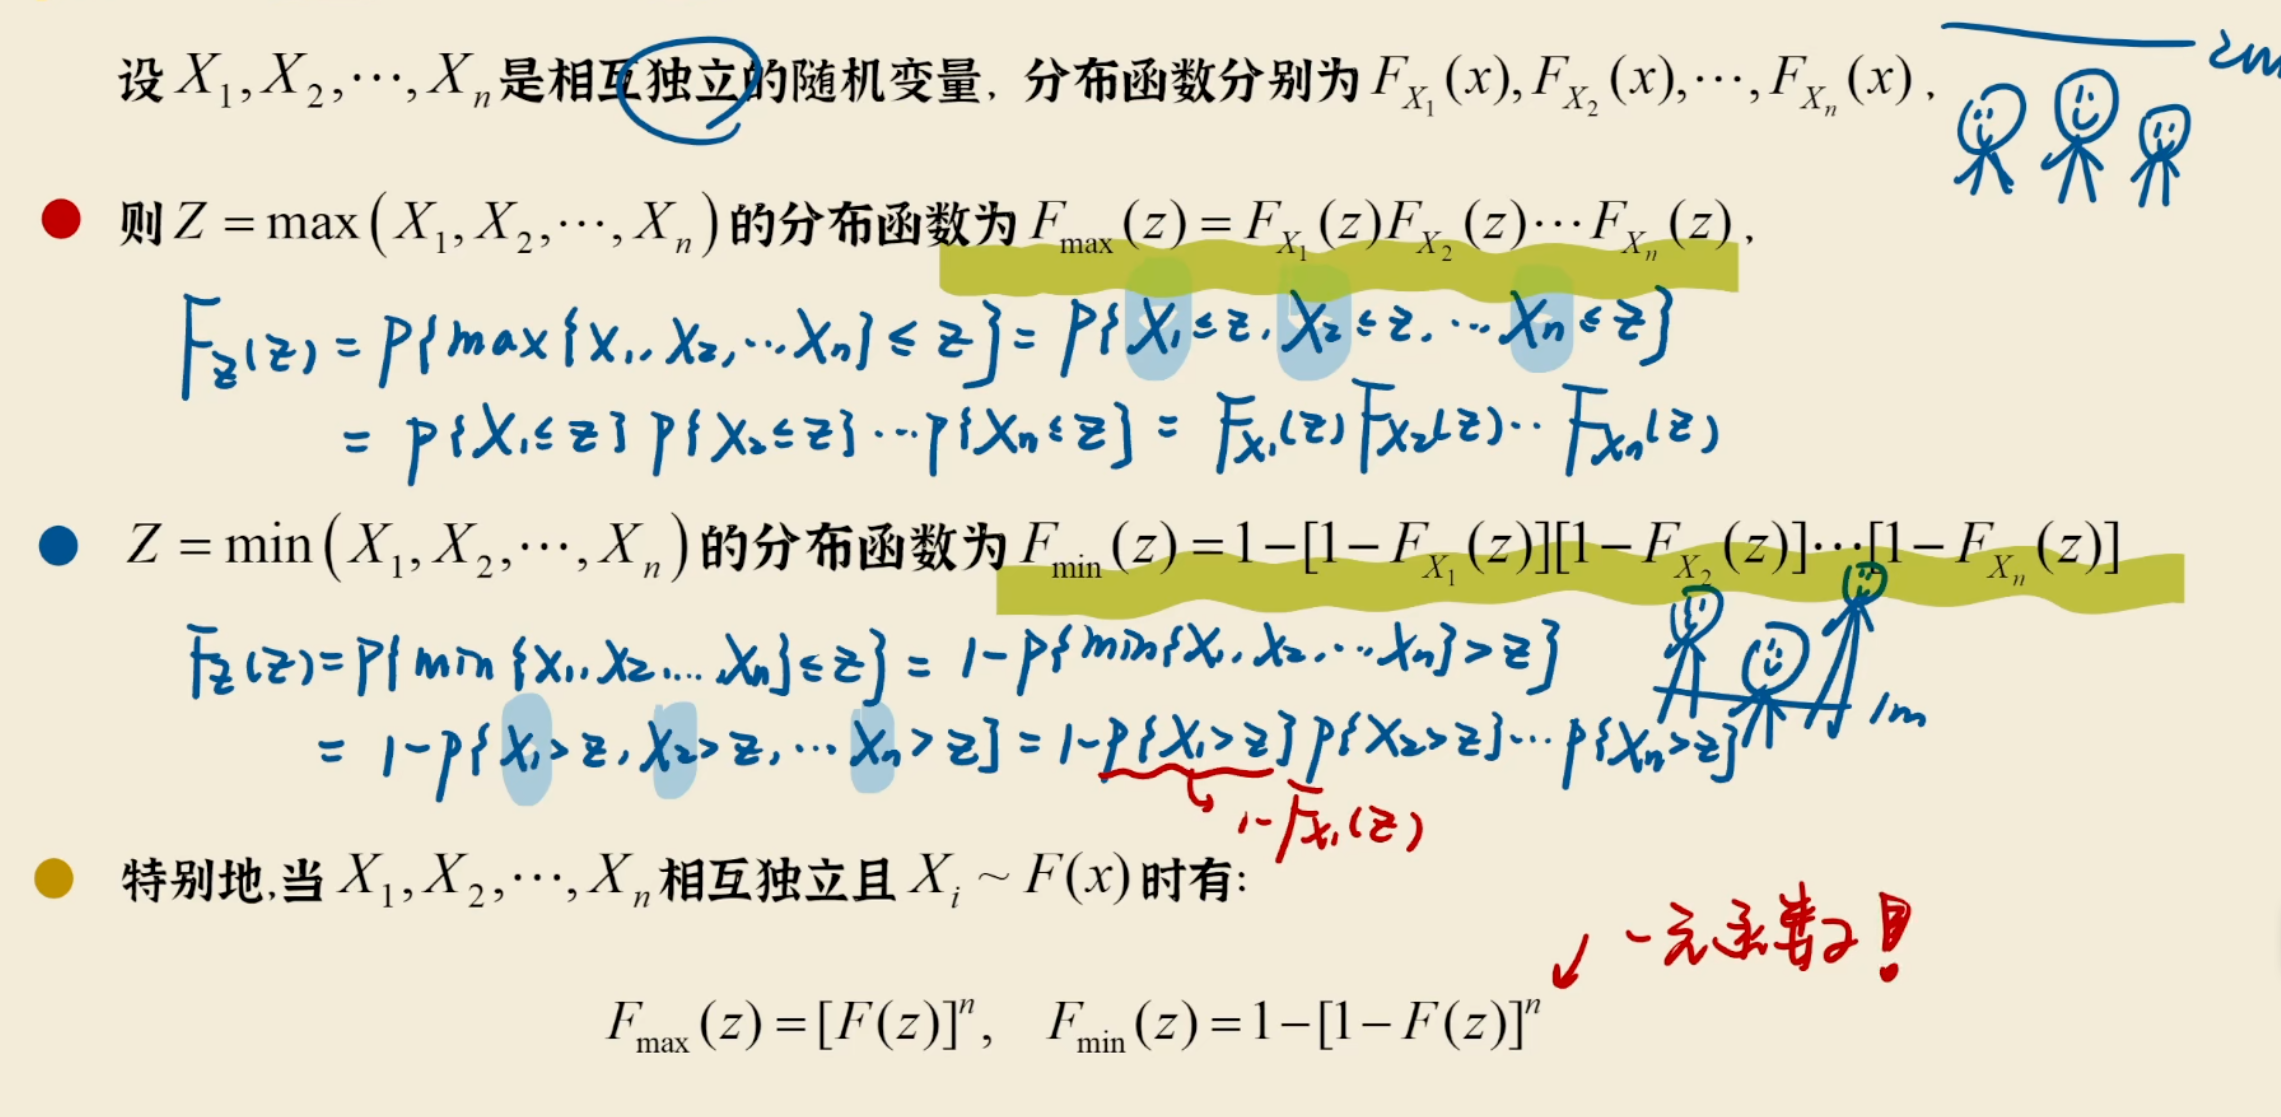 设 X₁, X₂, ⋯, Xₙ 是相互独立的随机变量, 分布函数分别为 F_{X₁}(x), F_{X₂}(x), ⋯, F_{Xₙ}(x),
2m
则 Z = max(X₁, X₂, ⋯, Xₙ) 的分布函数为 F_{max}(z) = F_{X₁}(z)F_{X₂}(z)⋯F_{Xₙ}(z),
F_Z(z) = P{max{X₁, X₂, ⋯Xₙ} ≤ z} = P{X₁ ≤ z, X₂ ≤ z, ⋯ Xₙ ≤ z}
= P{X₁ ≤ z} P{X₂ ≤ z} ⋯ P{Xₙ ≤ z} = F_{X₁}(z) F_{X₂}(z)⋯F_{Xₙ}(z)
Z = min(X₁, X₂, ⋯, Xₙ) 的分布函数为 F_{min}(z) = 1−[1−F_{X₁}(z)][1−F_{X₂}(z)]⋯[1−F_{Xₙ}(z)]
F_Z(z) = P{min{X₁, X₂, ⋯, Xₙ} ≤ z} = 1−P{min{X₁, X₂, ⋯Xₙ} > z}
1m
= 1−P{X₁ > z, X₂ > z, ⋯ Xₙ > z} = 1−P{X₁ > z} P{X₂ > z}⋯P{Xₙ > z}
1−F_{X₁}(z)
特别地,当 X₁, X₂, ⋯, Xₙ 相互独立且 X_i ~ F(x) 时有:
一元函数!
F_{max}(z) = [F(z)]ⁿ, F_{min}(z) = 1−[1−F(z)]ⁿ